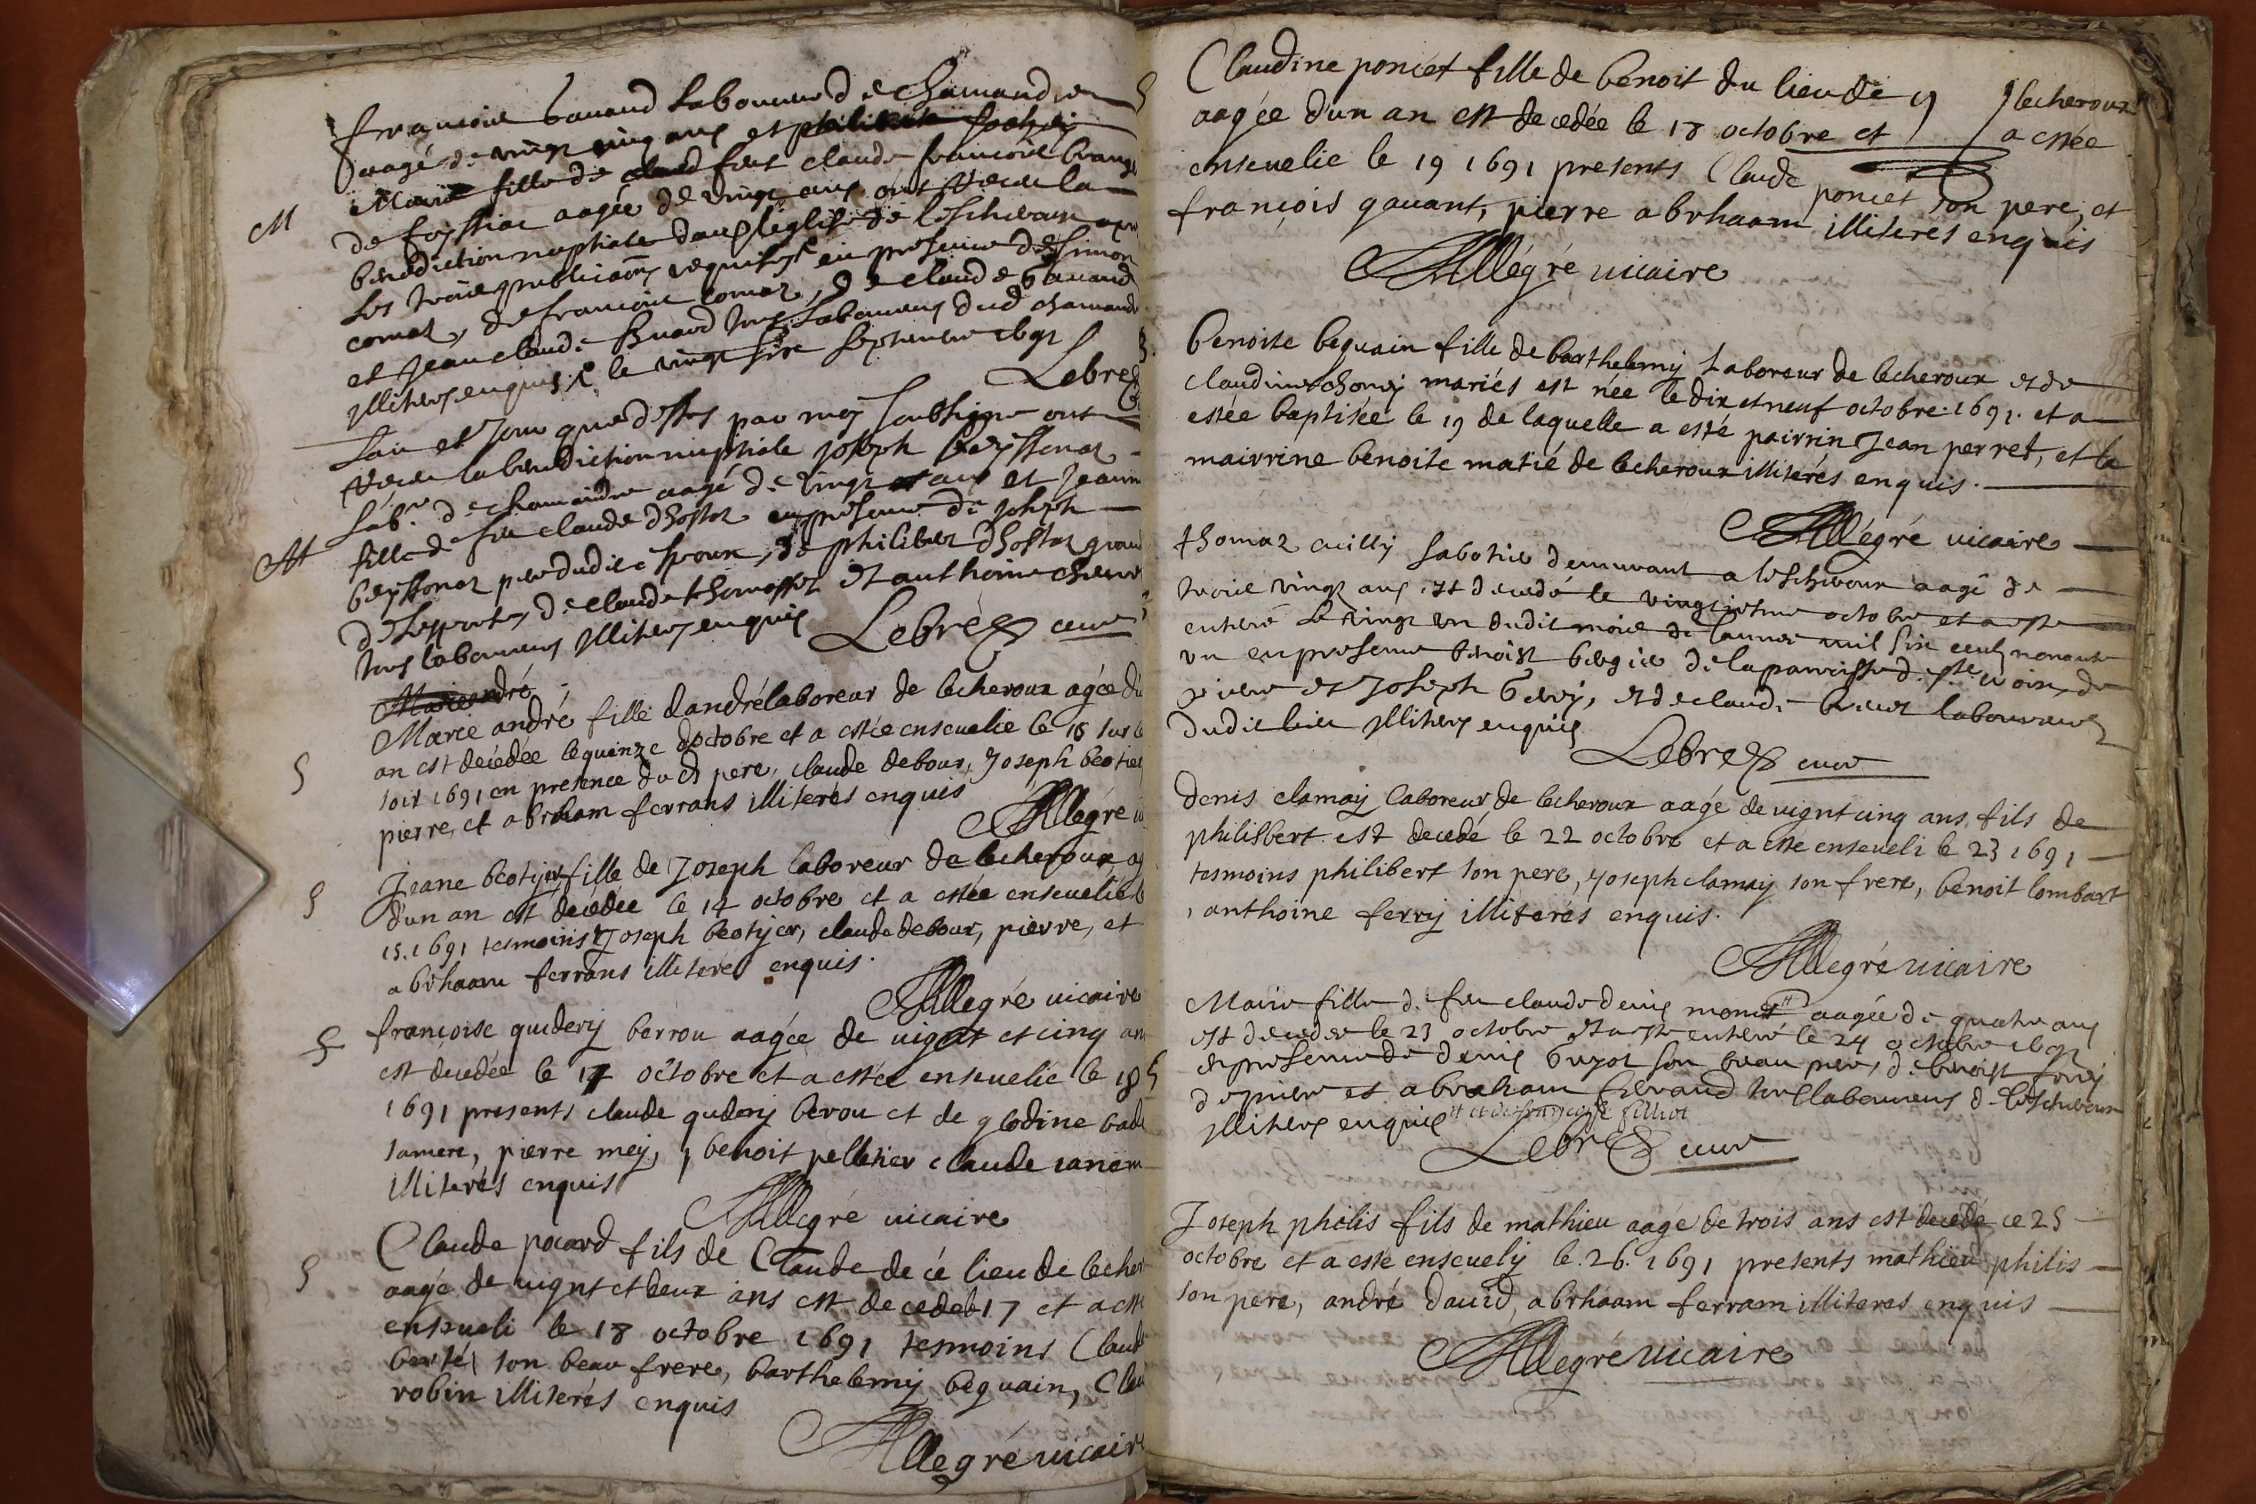 françois Gauand Laboureur de Chamandre
aagé de vingt cinq ans et
Marie fille de feu claude françoise
de foissiac aagée de vingt ans ont receu la
benediction nuptiale dans l'église de lescheroux
les trois publicaõns requises en presence de Simon
comas, de françois comas, de claude Gauand
et Jean claude Buard tous Laboureurs dud chamandre
illiters enquis le vingt six septembre 1691
Lebre
M
L'an et Jour que dessus par moy soubsigné ont
receu la benediction nuptiale Joseph Beyssonat
Labr. de chamandre aagé de vingt ans et Jeanne
fille de feu claude dhostat en presence de Joseph
M
beyssonat pere dudit espoux, de philibert dhostat
de claude thomasset et anthoine
tous laboureurs illiters enquis
Lebre cure
Marie andré
Marie andré fille dandré laboreur de lecheroux agée du
an est decédée le quinze doctobre et a estée enseuelie le 16 sur le
S
soir 1691 en presence du d pere, claude debour, Joseph beotier
pierre, et abraham ferrans illiterés enquis
Allegré
Jeane beotyer fille de Joseph laboreur de lecheroux
S
d'un an est decedée le 14 octobre et a estée enseuelie
15. 1691 tesmoins Joseph beotyer, claude debour, pierre, et
abrhaam ferrans illiterés enquis.
Allegré vicaire
S
françoise guidery berrou aagée de vignt et cinq an
est decedée le 17 octobre et a estée enseuelie le 18
1691 presents claude gudery berou et de glodine
samere, pierre mey, benoit pelletier claude
illiterés enquis
Allegré vicaire
Claude pocard fils de Claude de cé lieu de lecher
S
aagé de vignt et deux ans est decedé le 17 et a esté
enseueli le 18 octobre 1691 tesmoins Claude
son beau frere, barthelemy beguain, Clau
robin illiterés enquis
Allegré vicaire
Claudine poncet fille de benoit du lieu de lecheroux
aagée d'un an est decedée le 18 octobre et a estée
enseuelie le 19 1691 presents Claude poncet son pere, et
françois gauant, pierre abrhaam illiterés enquis
Allégré vicaire
benoite beguain fille de barthelemy Laboreur de lecheroux et de
claudine chonej mariés est née le dix et neuf octobre 1691. et a
estée baptisée le 19 de laquelle a esté pairrin Jean perret, et la
mairrine benoite matié de lecheroux illiterés enquis.
Allégré vicaire
thomas cuilly sabotier demeurant a leschroux aagé de
trois vingt ans est decedé le vingtiesme octobre et a este
enterré le vingt un dudit mois de l'annee mil six cents nonante
un en presence benoist bergier de la parroisse de ste croix, de
pierre et Joseph Gery, et de claude laboureurs
dudit lieu illiters enquis
Lebre cure
denis clamay laboreur de lecheroux aagé de vignt cinq ans fils de
philisbert est decedé le 22 octobre et a este enseueli le 23 1691
tesmoins philibert son pere, Joseph clamay son frere, benoit lombart
, anthoine ferry illiterés enquis.
Allegré vicaire
Marie fille de feu claude denis monet aagée de quatre ans
est decedee le 23 octobre et a este enterré le 24 octobre 1691
en presence de denis Guyot son beau pere, de benoist ferry
de pierre et abraham ferrand tous laboureurs de leschroux
illiters enquis et de françoise filliot
Lebre cure
Joseph philis fils de mathieu aagé de trois ans est decedé ce 25
octobre et a esté enseuely le 26. 1691 presents mathieu philis
son pere, andré dauid, abrhaam ferram illiteres enquis
Allegré vicaire